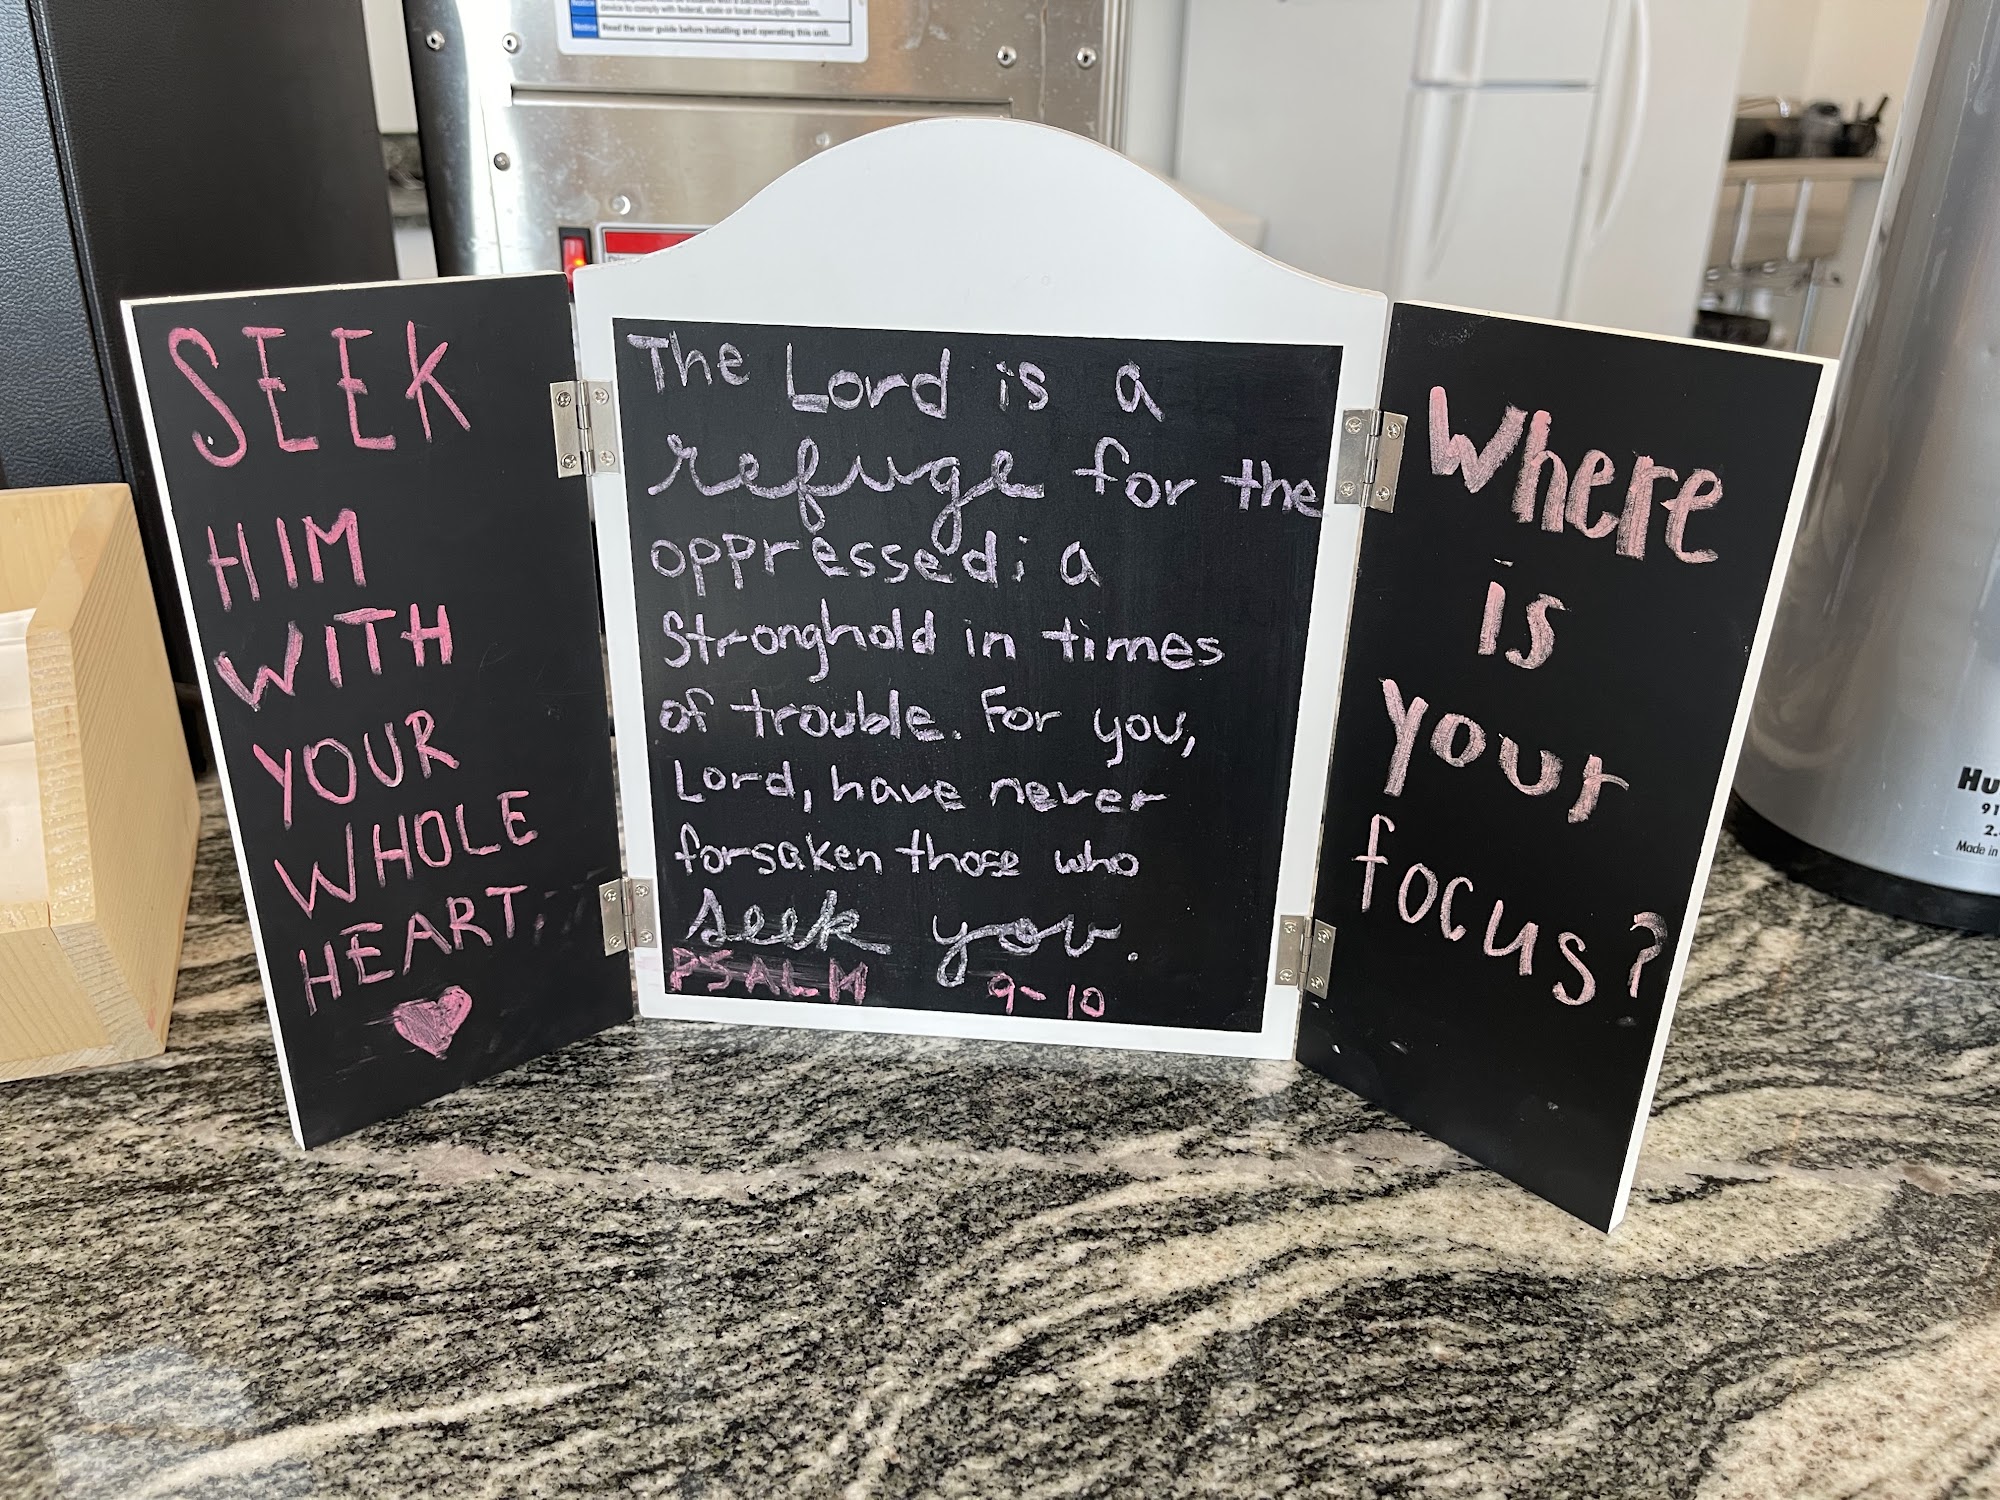 device to comply with federal, state or local municipality codes.
Notice
Read the user guide before installing and operating this unit.
SEEK
HIM
WITH
YOUR
WHOLE
HEART.
The Lord is a
refuge for the
oppressed; a
Stronghold in times
of trouble. For you,
Lord, have never
forsaken those who
seek you.
PSALM 9-10
Where
is
your
focus?
Hu
91
2.
Made in